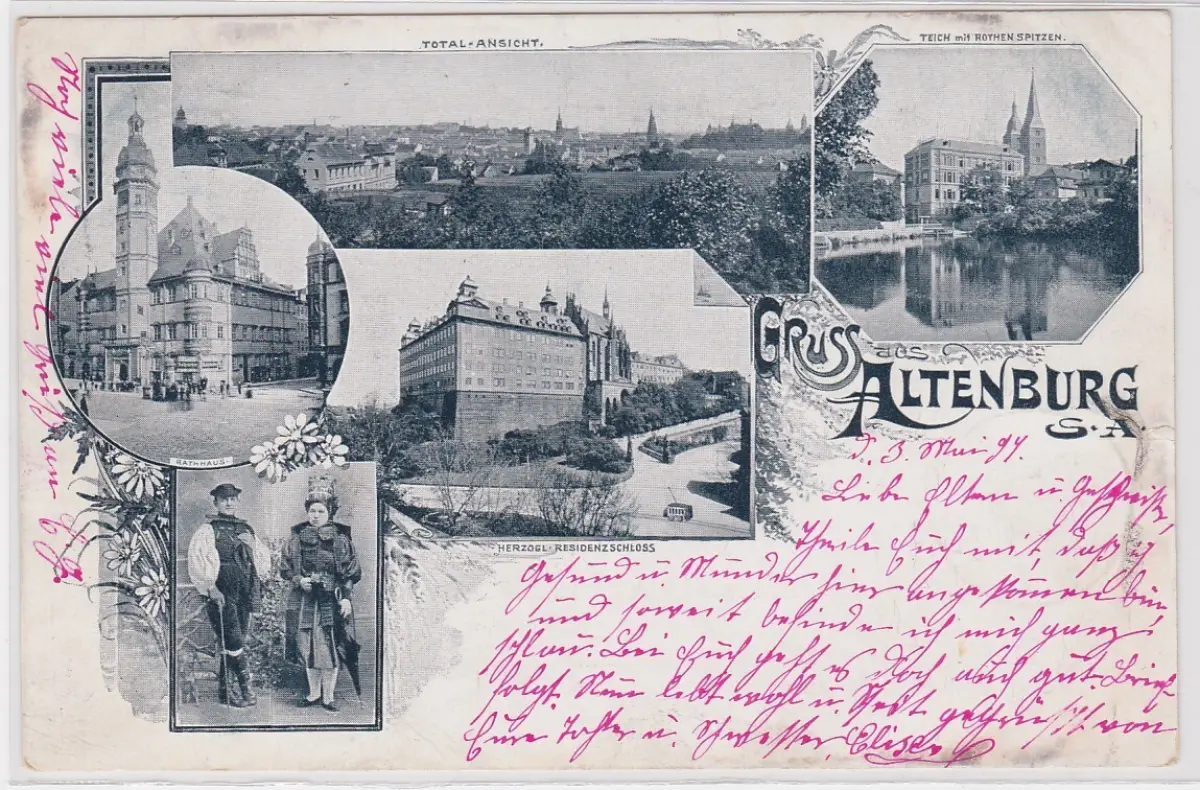 TOTAL-ANSICHT.
TEICH mit ROTHEN SPITZEN.
RATHHAUS.
HERZOGL. RESIDENZSCHLOSS
GRUSS aus
ALTENBURG
S.A.
d. 3. Mai 97.
Liebe Eltern u. Geschwister,
Theile Euch mit, daß ich
Gesund u. Munder hier angekommen bin,
und soweit befinde ich mich ganz
schlau. Bei Euch geht es doch auch gut. Brief
folgt. Nun lebt wohl u. Seit gegrüßt von
Eure Tochter u. Schwester Elise